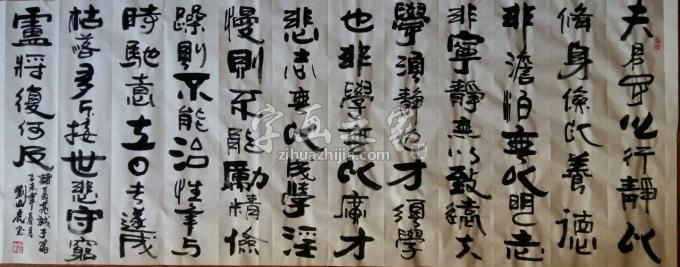 夫君子之行靜以
修身儉以養德
非澹怕無以明志
非寧靜無以致遠夫
學須靜也才須學
也非學無以廣才
悲志無以成學淫
慢則不能勵精儉
躁則不能治性年与
時馳意与日去遂成
枯落多不接世悲守窮
盧將復何及
諸葛亮誡子篇
乙未年春月
字画之家
zihuazhijia.com